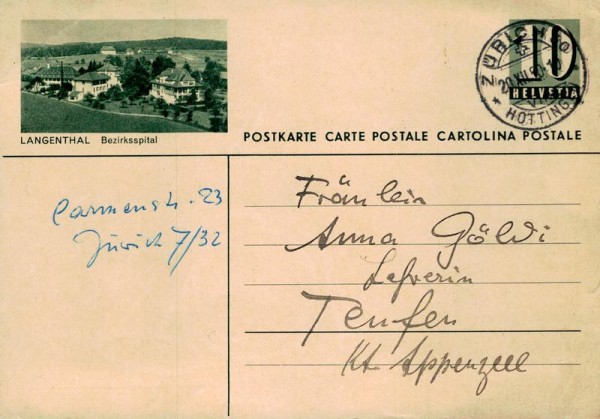 LANGENTHAL Bezirksspital
10
HELVETIA
ZÜRICH
HOTTING
POSTKARTE CARTE POSTALE CARTOLINA POSTALE
Carmenstr. 23
Zürich 7/32
Fräulein
Anna Göldi
Lehrerin
Teufen
Kt. Appenzell